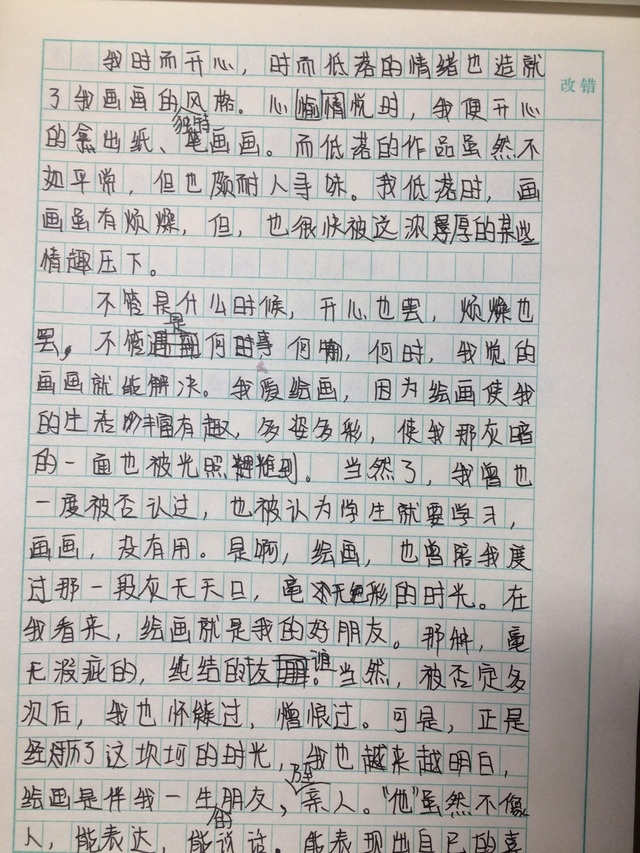 改错
我时而开心，时而低落的情绪也造就
了我画画的独特风格。心愉情悦时，我便开心
的拿出纸、笔画画。而低落的作品虽然不
如平常，但也颇耐人寻味。我低落时，画
画虽有烦燥，但，也很快被这浓厚的某些
情趣压下。
不管是什么时候，开心也罢，烦燥也
罢，不管是何事何物，何时，我觉的
画画就能解决。我爱绘画，因为绘画使我
的生态妙丰富有趣，多姿多彩，使我那灰暗
的一面也被光照到。当然了，我曾也
一度被否认过，也被认为学生就要学习，
画画，没有用。是啊，绘画，也曾陪我度
过那一段灰无天日，毫无色彩的时光。在
我看来，绘画就是我的好朋友。那种，毫
无瑕疵的，纯结的友谊。当然，被否定多
次后，我也怀疑过，憎恨过。可是，正是
经历了这坎坷的时光，我也越来越明白，
绘画是伴我一生的朋友，乃至亲人。"他"虽然不像
人，能表达，能说话。能表现出自己的喜